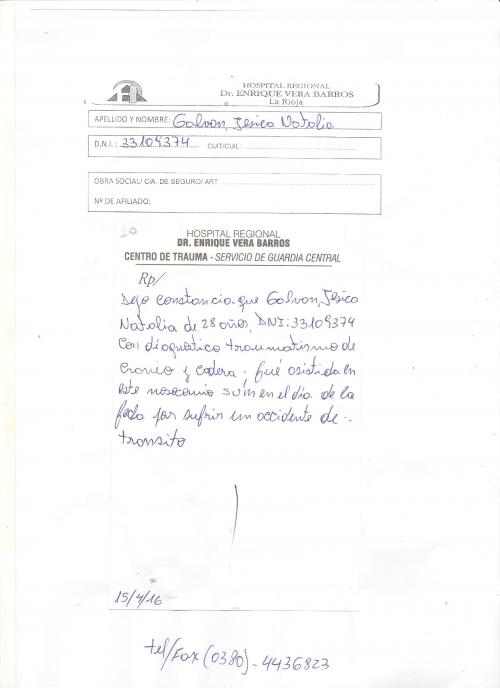 HOSPITAL REGIONAL
Dr. ENRIQUE VERA BARROS
La Rioja
APELLIDO Y NOMBRE: Galvan, Jesica Natalia
D.N.I.: 33109374 CUIT/CUIL:
OBRA SOCIAL/ CIA. DE SEGURO/ ART
Nº DE AFILIADO:
HOSPITAL REGIONAL
DR. ENRIQUE VERA BARROS
CENTRO DE TRAUMA - SERVICIO DE GUARDIA CENTRAL
Rp/
Dejo constancia que Galvan, Jesica
Natalia de 28 años, DNI: 33109374
con diagnostico traumatismo de
craneo y cadera. fué asistida en
este nosocomio en el dia de la
fecha por sufrir un accidente de
transito
15/4/16
tel/Fax (0380)-4436823